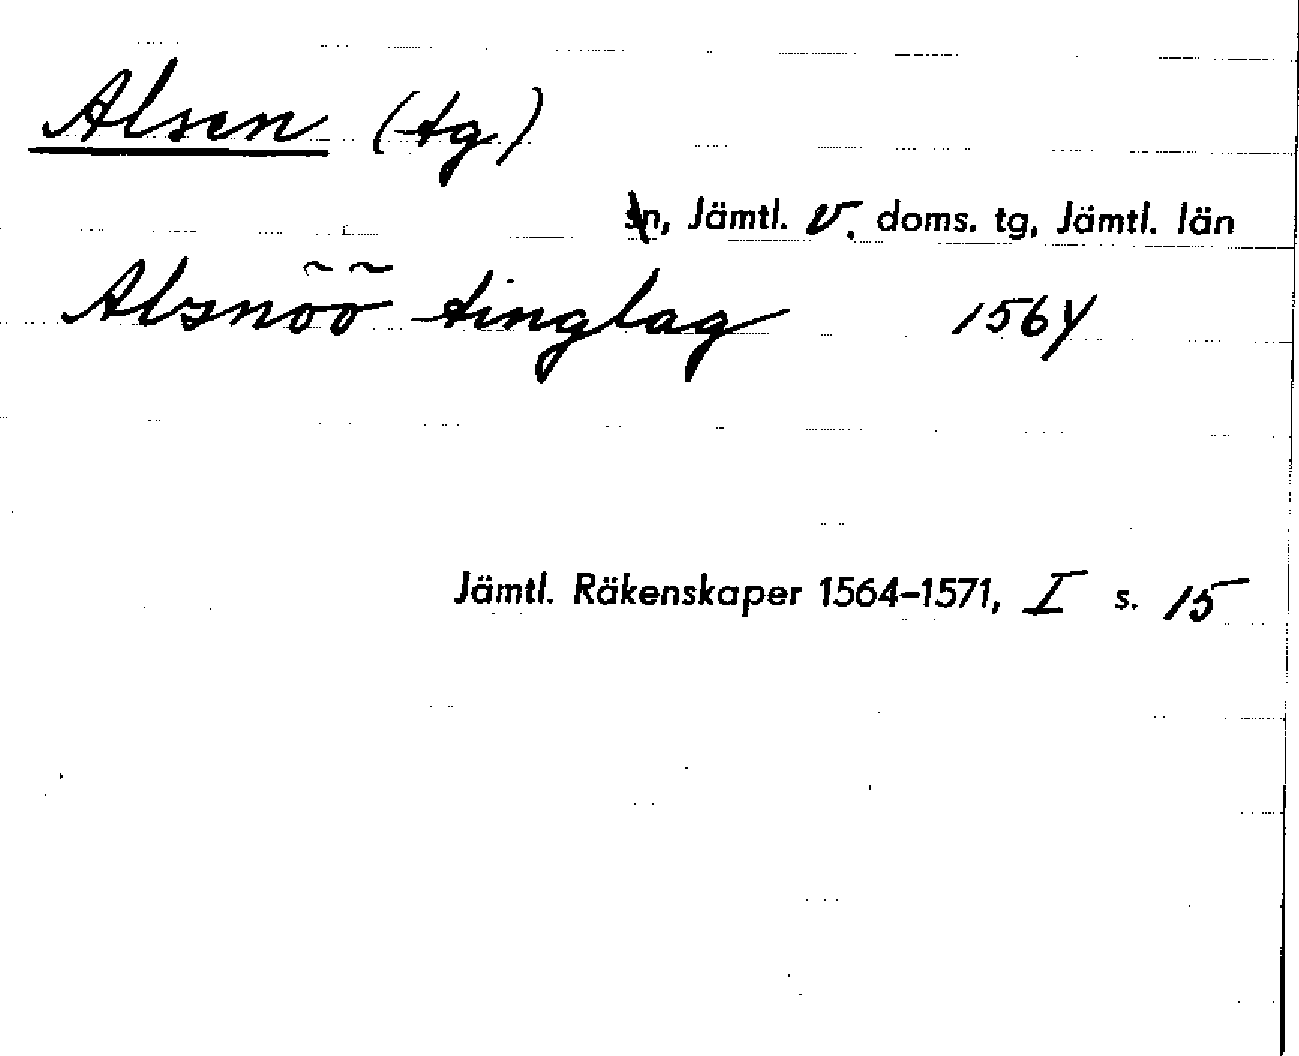 Alsen (tg)
sn, Jämtl. v. doms. tg, Jämtl. län
Alsnõõ tinglag 1564
Jämtl. Räkenskaper 1564–1571, I s. 15